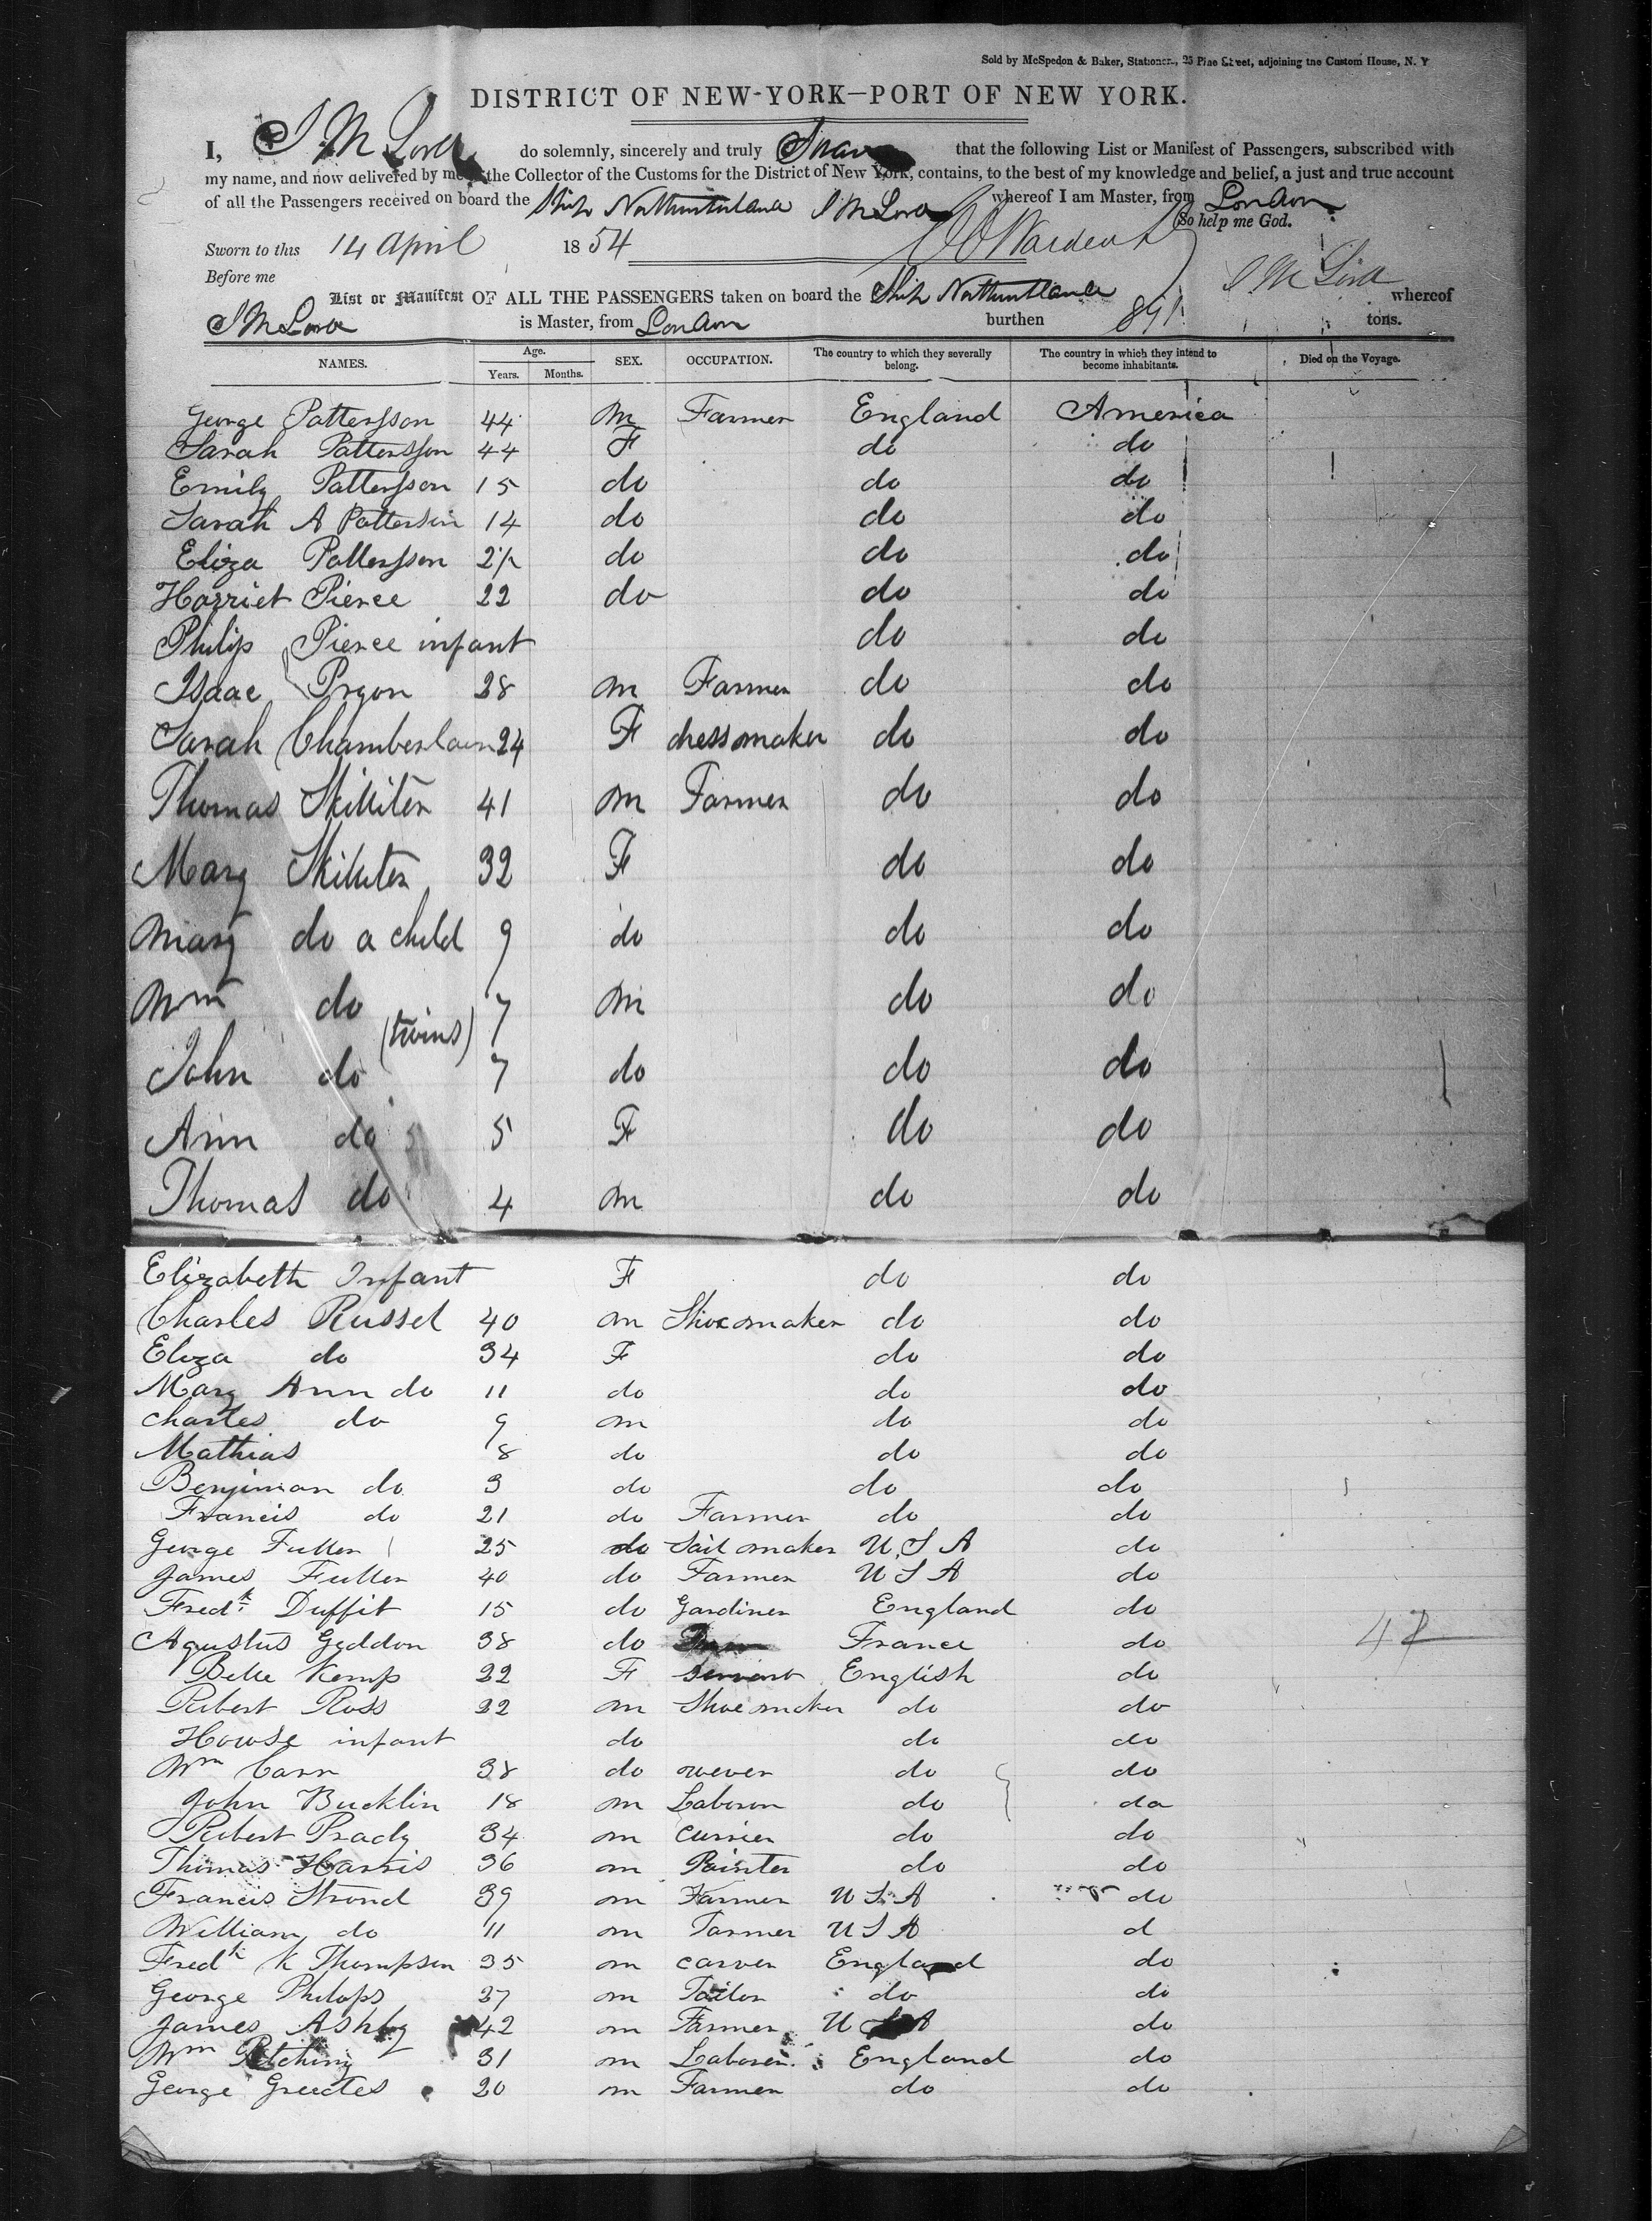 Sold by McSpedon & Baker, Stationers, 25 Pine Street, adjoining the Custom House, N. Y
DISTRICT OF NEW-YORK—PORT OF NEW YORK.
I, J M Lord do solemnly, sincerely and truly Swear that the following List or Manifest of Passengers, subscribed with
my name, and now delivered by me to the Collector of the Customs for the District of New York, contains, to the best of my knowledge and belief, a just and true account
of all the Passengers received on board the Ship Northumberland J M Lord whereof I am Master, from London
So help me God.
Sworn to this 14 April 1854
Before me J M Lord
List or Manifest OF ALL THE PASSENGERS taken on board the Ship Northumberland whereof
J M Lord is Master, from London burthen 891 tons.
NAMES. Age. Years. Months. SEX. OCCUPATION. The country to which they severally belong. The country in which they intend to become inhabitants. Died on the Voyage.
George Pattersson 44 M Farmer England America
Sarah Pattersson 44 F do do
Emily Pattersson 15 do do do
Sarah A Patterson 14 do do do
Eliza Pattersson do do do
Harriet Pierce 22 do do do
Philip Pierce infant do do
Isaac Pryon 28 m Farmer do do
Sarah Chamberlain 24 F dressmaker do do
Thomas Skilliter 41 m Farmer do do
Mary Skilliter 32 F do do
Mary do a child 9 do do do
Wm do 7 m do do
(twins)
John do 7 do do do
Ann do 5 F do do
Thomas do 4 m do do
Elizabeth Infant F do do
Charles Russel 40 m Shoemaker do do
Eliza do 34 F do do
Mary Ann do 11 do do do
Charles do 9 m do do
Mathias 8 do do do
Benjiman do 3 do do do
Francis do 21 do Farmer do do
George Fuller 25 do Sail maker U.S A do
James Fuller 40 do Farmer U S A do
Fredk. Duffit 15 do Gardiner England do
Agustus Geddon 38 do France do
Belle Kemp 22 F Servant English do
Robert Ross 32 m Shoemaker do do
Howse infant do do do
Wm Carr 38 do wever do do
John Bucklin 18 m Laborer do do
Robert Prady 34 m Currier do do
Thomas Harris 36 m Painter do do
Francis Strond 39 m Farmer U S A do
William do 11 m Farmer U S A d
Fredk K Thompson 35 m carver England do
George Philops 27 m Tailor do do
James Ashby 42 m Farmer U S A do
Wm Pitching 31 m Laborer England do
George 20 m Farmer do do